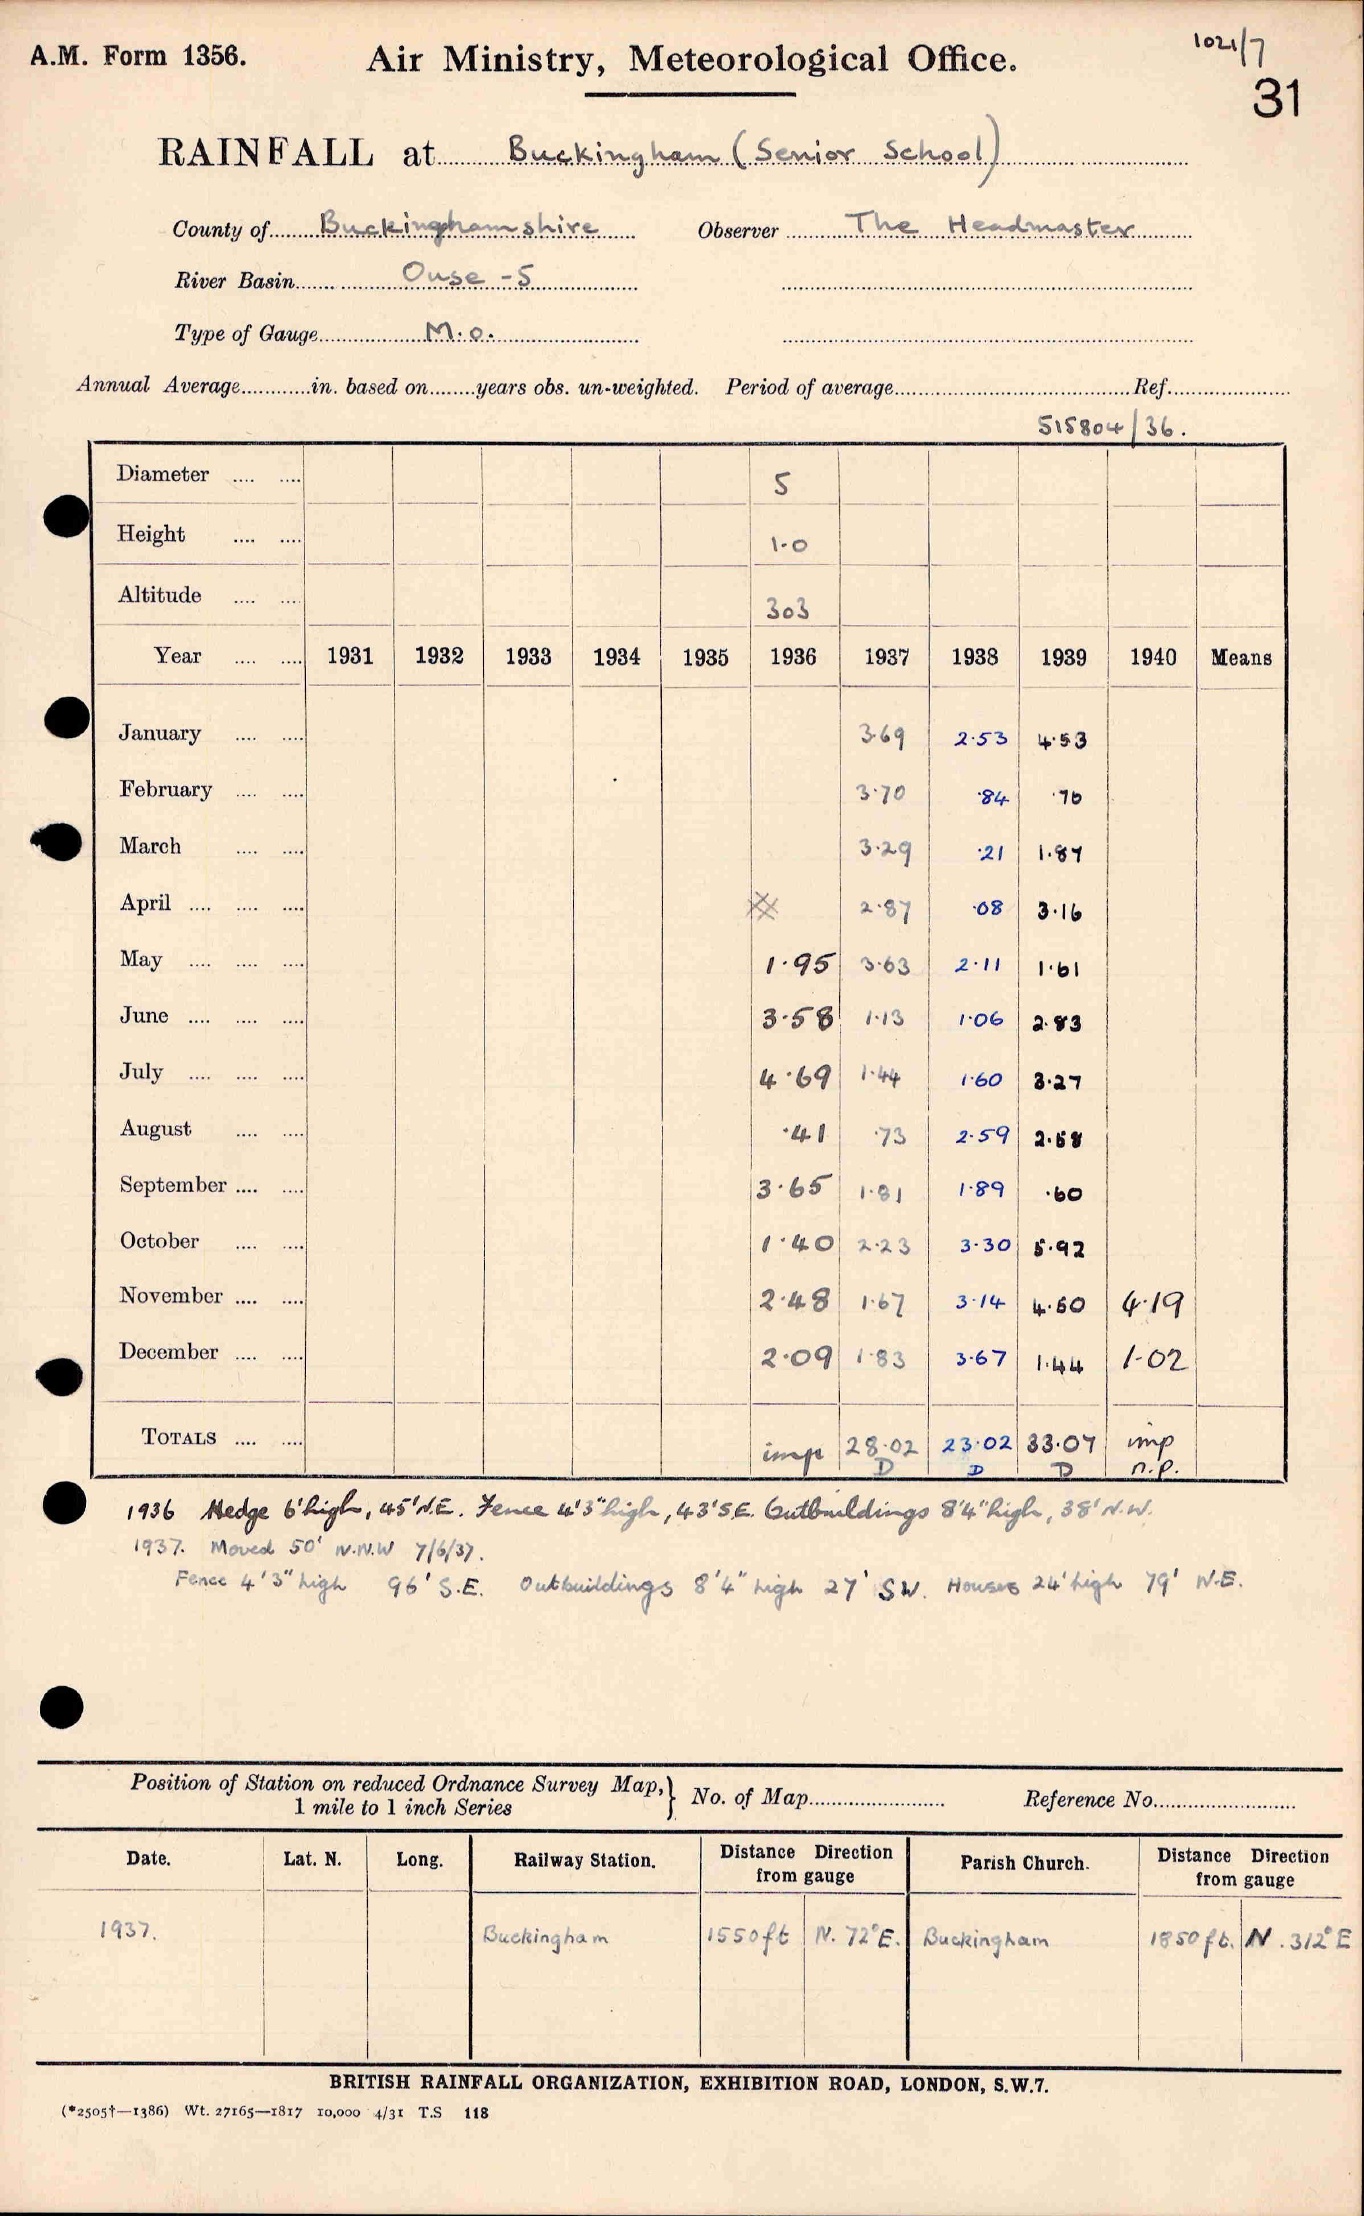 A.M. Form 1356.
Air Ministry, Meteorological Office.
1021/7
31
RAINFALL at Buckingham (Senior School)
County of Buckinghamshire Observer The Headmaster
River Basin Ouse -5
Type of Gauge M.O.
Annual Average in. based on years obs. un-weighted. Period of average Ref.
515804/36.
Diameter 5
Height 1.0
Altitude 303
Year 1931 1932 1933 1934 1935 1936 1937 1938 1939 1940 Means
January 3.69 2.53 4.53
February 3.70 .84 .76
March 3.29 .21 1.87
April 2.87 .08 3.16
May 1.95 3.63 2.11 1.61
June 3.58 1.13 1.06 2.83
July 4.69 1.44 1.60 3.27
August .41 .73 2.59 2.58
September 3.65 1.81 1.89 .60
October 1.40 2.23 3.30 5.92
November 2.48 1.67 3.14 4.50 4.19
December 2.09 1.83 3.67 1.44 1.02
TOTALS imp 28.02 23.02 33.07 imp
D D D n.p.
1936 Hedge 6' high, 45' N.E. Fence 4'3" high, 43' S.E. Outbuildings 8'4" high, 38' N.W.
1937. Moved 50' N.N.W 7/6/37.
Fence 4'3" high 96' S.E. Outbuildings 8'4" high 27' SW. Houses 24' high 79' N.E.
Position of Station on reduced Ordnance Survey Map,} No. of Map Reference No.
1 mile to 1 inch Series
Date. Lat. N. Long. Railway Station. Distance Direction from gauge Parish Church. Distance Direction from gauge
1937. Buckingham 1550 ft N. 72° E. Buckingham 1850 ft. N. 312° E
BRITISH RAINFALL ORGANIZATION, EXHIBITION ROAD, LONDON, S.W.7.
(*2505†—1386) Wt. 27165—1817 10,000 4/31 T.S 118